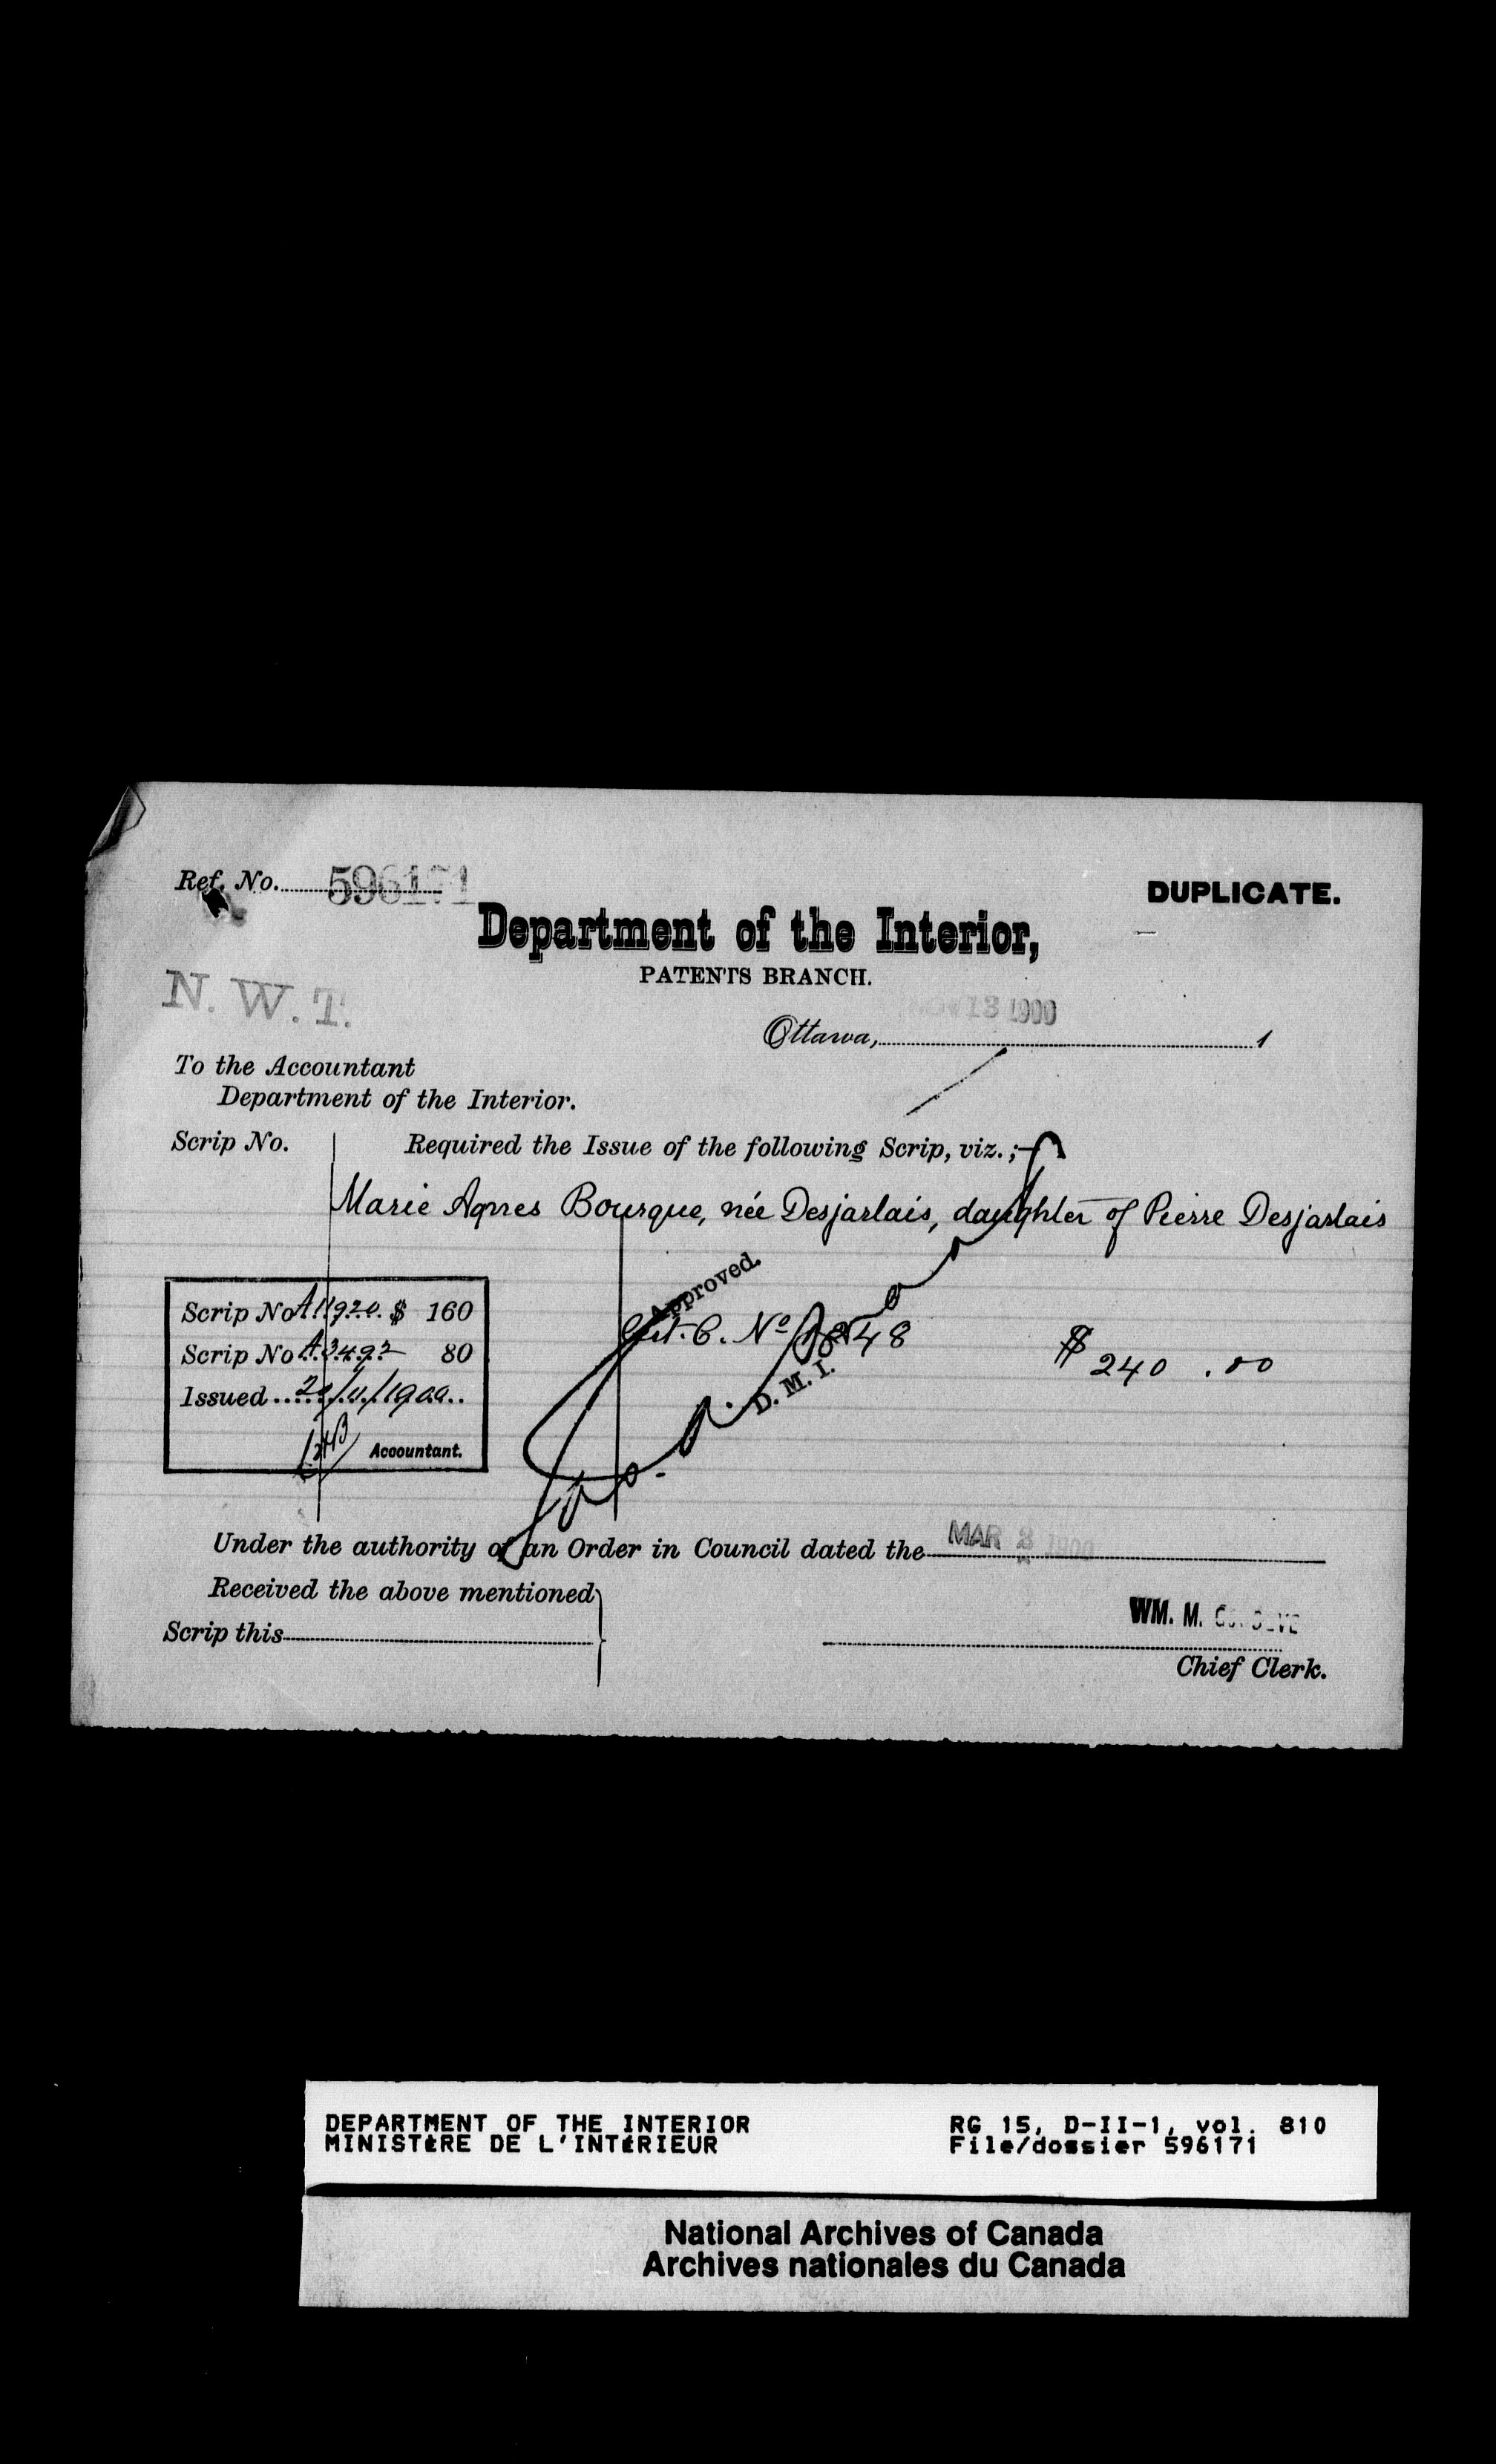 Ref. No. 596171
DUPLICATE.
Department of the Interior,
PATENTS BRANCH.
N. W. T.
NOV 13 1900
Ottawa, 1
To the Accountant
Department of the Interior.
Scrip No. Required the Issue of the following Scrip, viz.;
Marie Agnes Bourque, née Desjarlais, daughter of Pierre Desjarlais
Approved.
Scrip No A11920. $ 160
Scrip No A3492 80
Issued 1900
Accountant.
No 1848
$ 240 .00
D. M. I.
Under the authority of an Order in Council dated the MAR 2 1900
Received the above mentioned
Scrip this
WM. M.
Chief Clerk.
DEPARTMENT OF THE INTERIOR
MINISTÈRE DE L'INTÉRIEUR
RG 15, D-II-1, vol. 810
File/dossier 596171
National Archives of Canada
Archives nationales du Canada